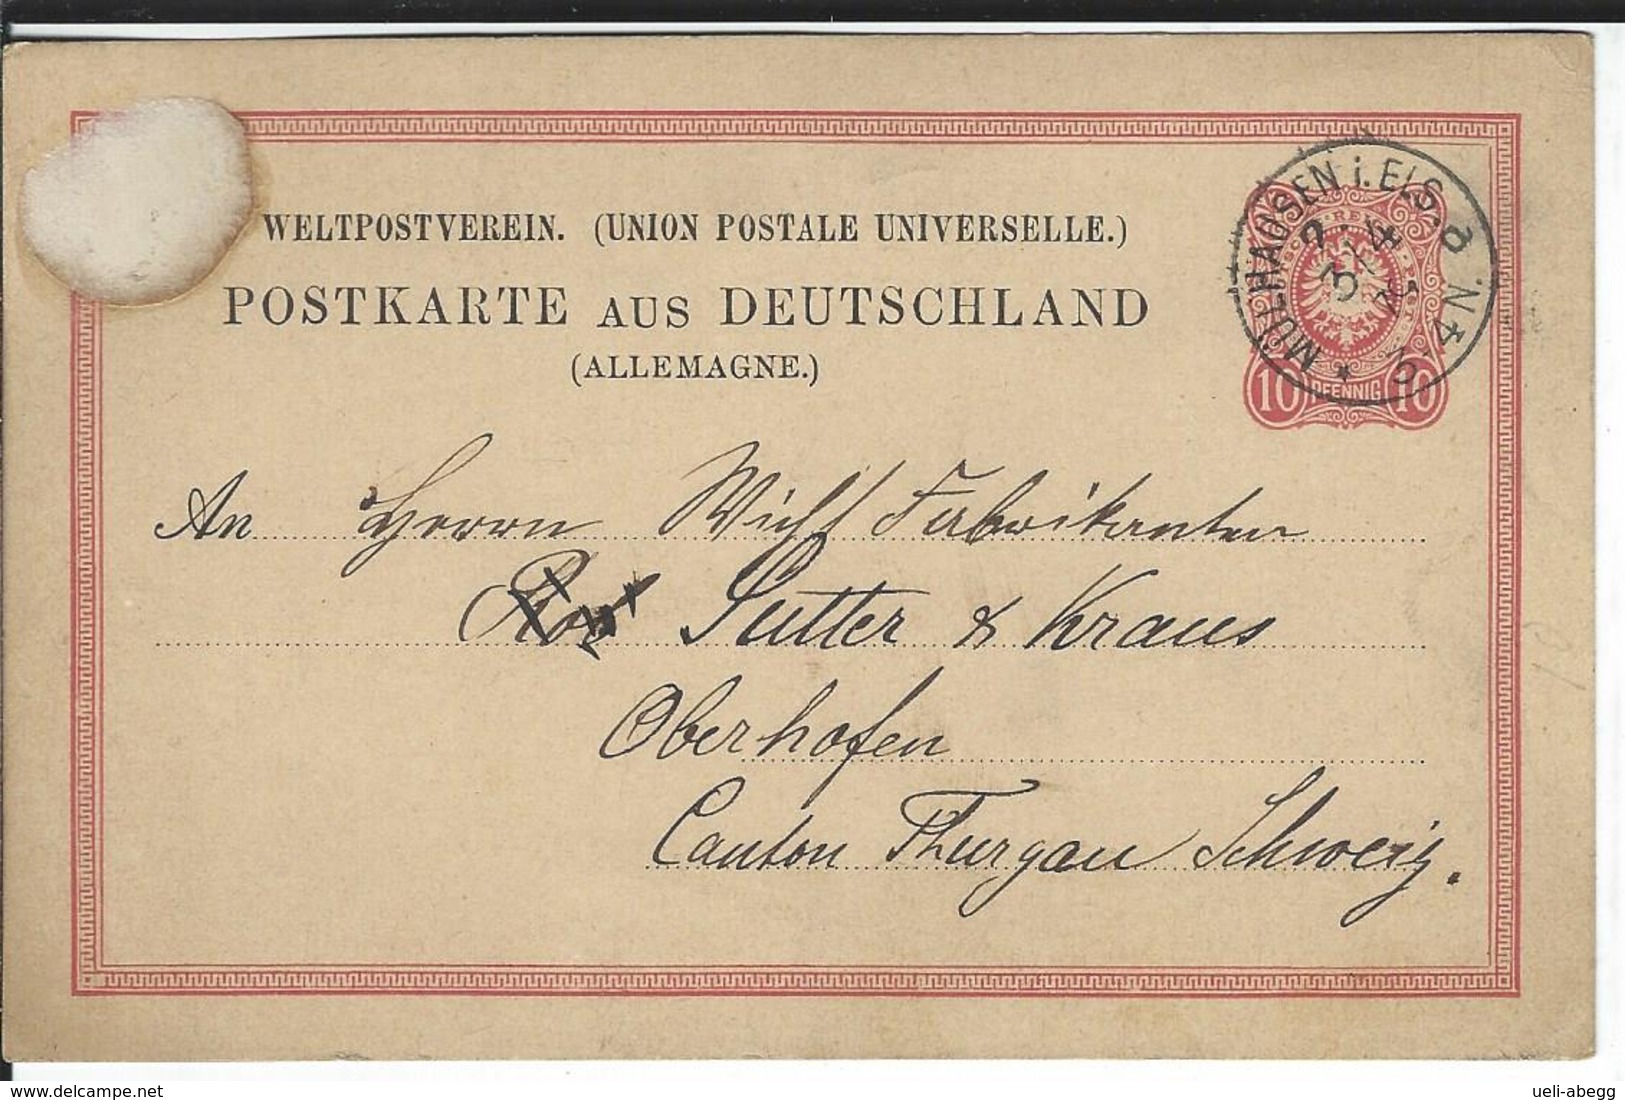 WELTPOSTVEREIN. (UNION POSTALE UNIVERSELLE.)
POSTKARTE AUS DEUTSCHLAND
(ALLEMAGNE.)
MÜLHAUSEN i. ELS.
10 PFENNIG 10
An Herrn Fabrikanten
Sutter & Kraus
Oberhofen
Canton Thurgau Schweiz.
www.delcampe.net
ueli-abegg